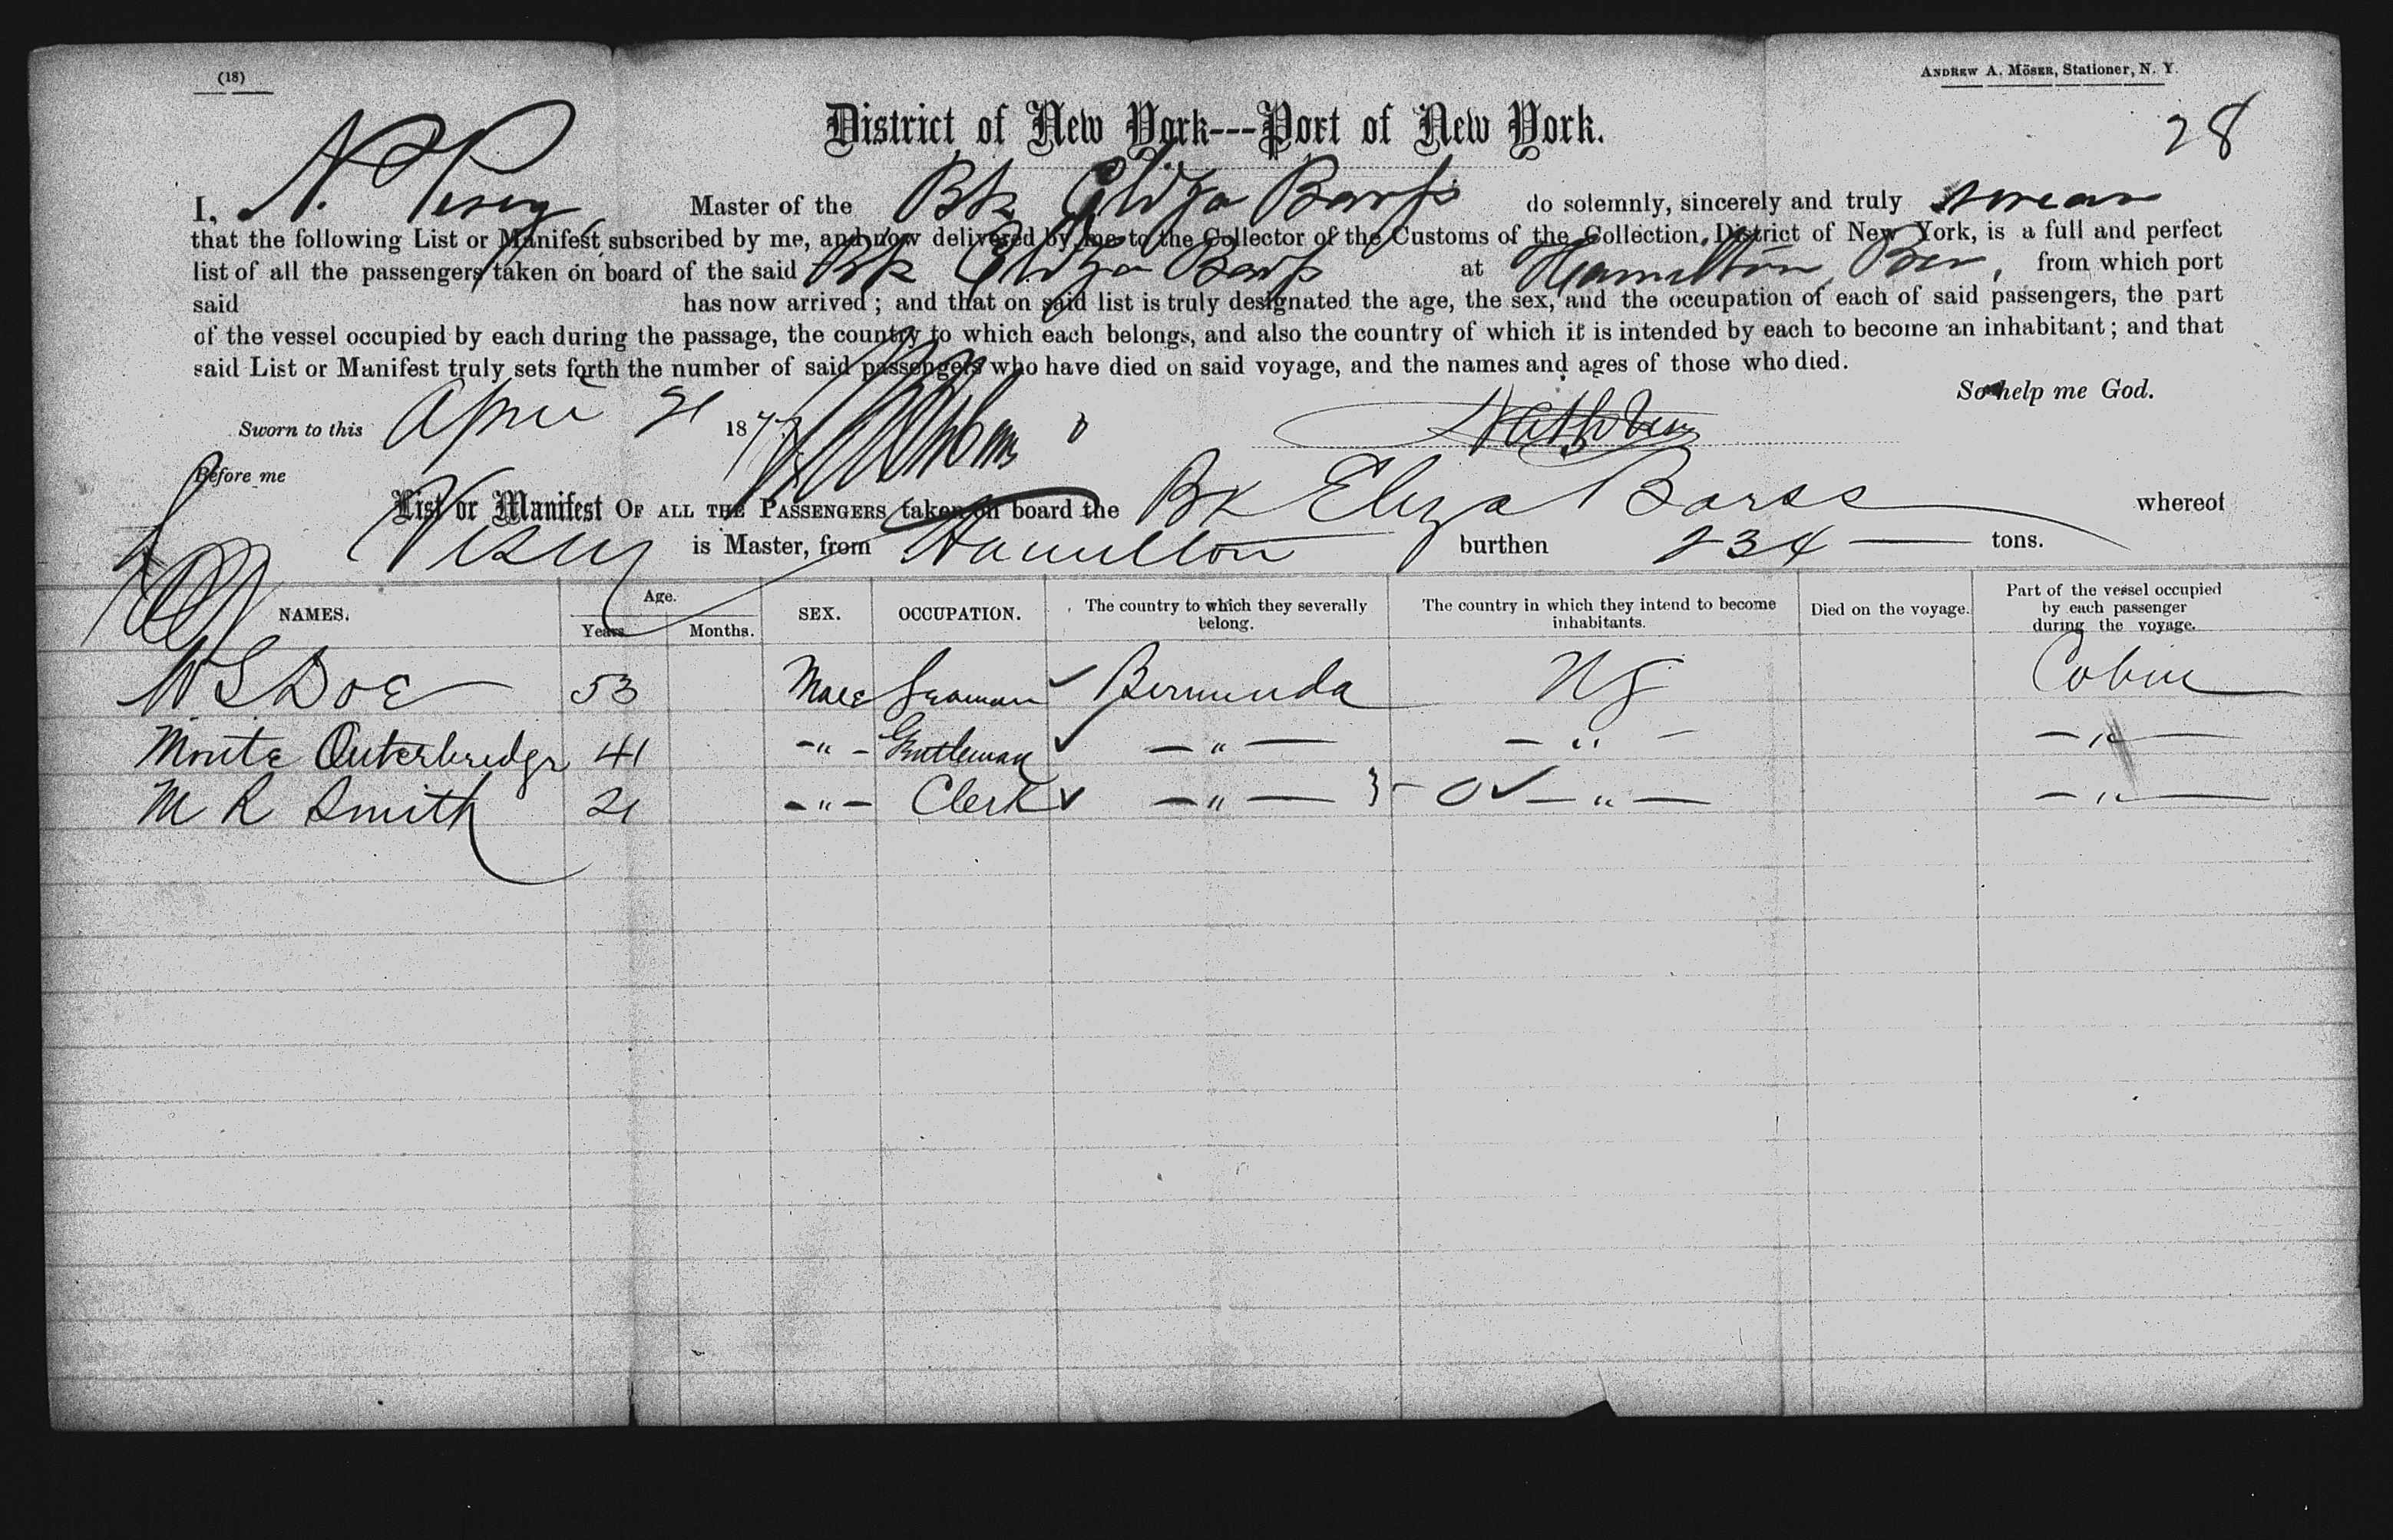 (18)
ANDREW A. MÖSER, Stationer, N. Y.
28
District of New York---Port of New York.
I, N. Vesey, Master of the Bk Eliza Barss do solemnly, sincerely and truly swear
that the following List or Manifest, subscribed by me, and now delivered by me to the Collector of the Customs of the Collection District of New York, is a full and perfect
list of all the passengers taken on board of the said Bk Eliza Barss at Hamilton, Ber, from which port
said has now arrived; and that on said list is truly designated the age, the sex, and the occupation of each of said passengers, the part
of the vessel occupied by each during the passage, the country to which each belongs, and also the country of which it is intended by each to become an inhabitant; and that
said List or Manifest truly sets forth the number of said passengers who have died on said voyage, and the names and ages of those who died.
So help me God.
Sworn to this April 21 1877
Before me
List or Manifest OF ALL THE PASSENGERS taken on board the Bk Eliza Barss whereof
Vesey is Master, from Hamilton burthen 234 tons.
NAMES. Age. Years. Months. SEX. OCCUPATION. The country to which they severally belong. The country in which they intend to become inhabitants. Died on the voyage. Part of the vessel occupied by each passenger during the voyage.
W S Doe 53 Male Seaman ✓ Bermuda NY Cabin
Monte Outerbridge 41 -"- Gentleman ✓ -"- -"- -"-
M R Smith 21 -"- Clerk ✓ -"- } - 0 ✓ -"- -"-